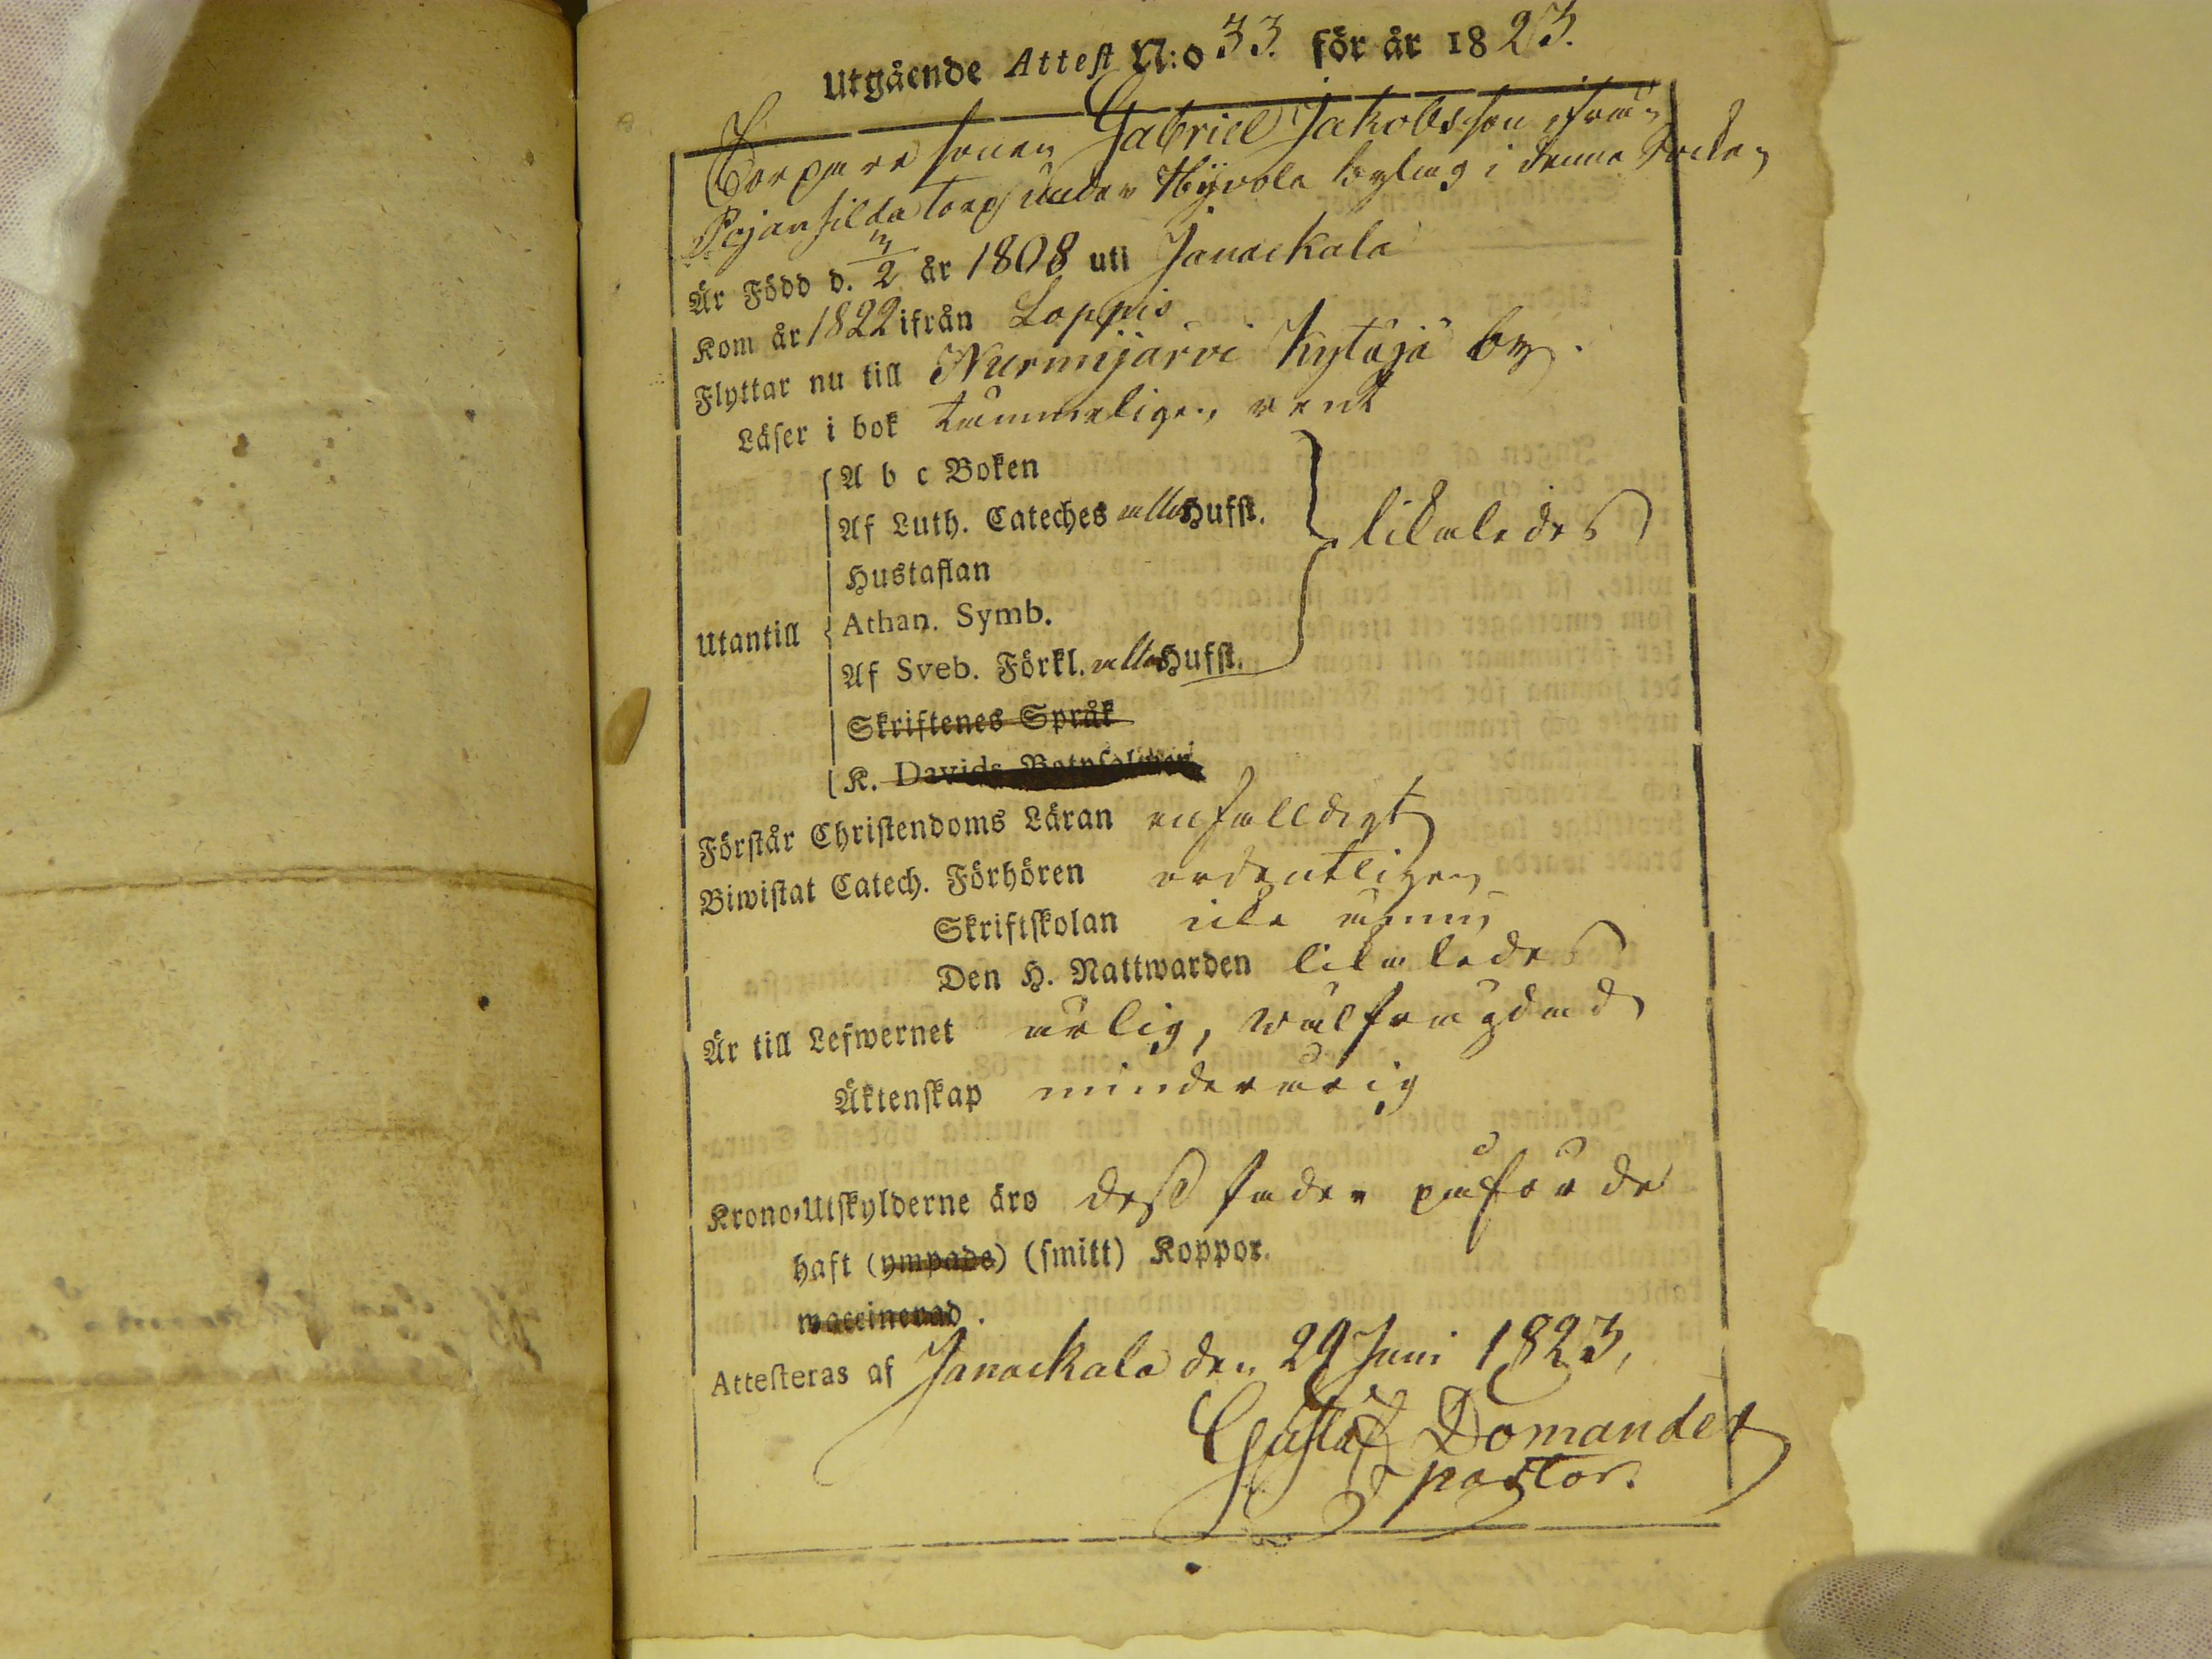 Utgående Attest N:o 33. för år 1823.
Torpare sonen Gabriel Jakobsson från
Pojansilda torp under Hyvola byalag i denna Socken
Är Född d. 2 år 1808 uti Janackala
Kom år 1822 ifrån Loppis
Flyttar nu till Nurmijärvi Kytäjä by.
Läser i bok tämmeligen rent
A b c Boken
Af Luth. Cateches alla Hufst.
likaledes
Hustaflan
Athan. Symb.
Utantill
Af Sveb. Förkl. alla Hufst.
Skriftenes Språk
K. Davids Botpsalmer
Förstår Christendoms Läran enfalldigt
Biwistat Catech. Förhören ordentligen
Skriftskolan icke ännu
Den H. Nattwarden likaledes
Är till Lefwernet ärlig, wälfrägdad
Äktenskap minderårig
Krono-Utskylderne äro dess fader påförde
haft (ympade) (smitt) Koppor.
waccinerad.
Attesteras af Janackala den 29 Juni 1823,
Gustaf Domander
pastor.